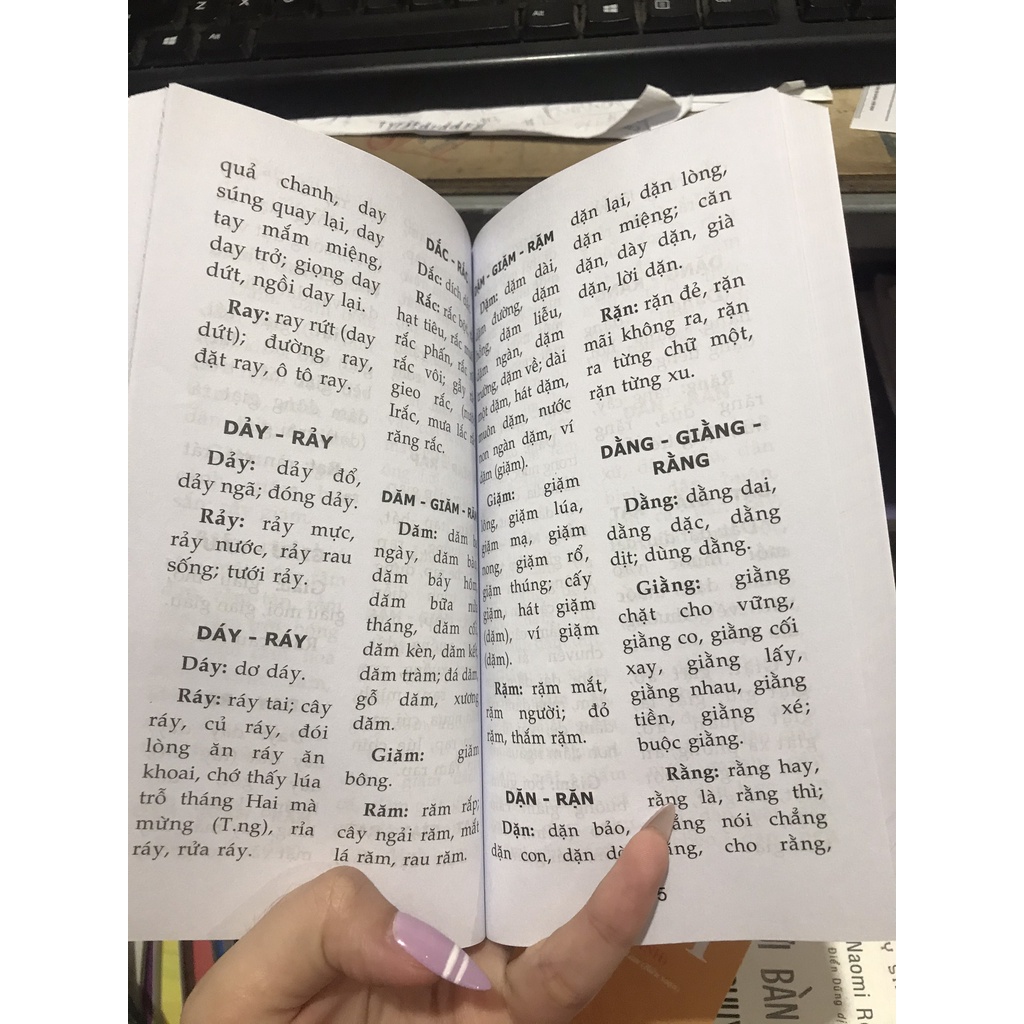 quả chanh, day
súng quay lại, day
tay mắm miệng,
day trở; giọng day
dứt, ngồi day lại.
Ray: ray rứt (day
dứt); đường ray,
đặt ray, ô tô ray.
DẢY - RẢY
Dảy: dảy đổ,
dảy ngã; đóng dảy.
Rảy: rảy mực,
rảy nước, rảy rau
sống; tưới rảy.
DÁY - RÁY
Dáy: dơ dáy.
Ráy: ráy tai; cây
ráy, củ ráy, đói
lòng ăn ráy ăn
khoai, chớ thấy lúa
trỗ tháng Hai mà
mừng (T.ng), rỉa
ráy, rửa ráy.
DẮC - RẮC
Dắc: dích
Rắc: rắc
hạt tiêu, rắc
rắc phấn, rắc
rắc vôi; gãy
gieo rắc,
Irắc, mưa lắc
răng rắc.
DĂM - GIĂM - RĂM
Dăm: dăm
ngày, dăm
dăm bảy hôm
dăm bữa
tháng, dăm
dăm kèn, dăm
dăm trầm; đá dăm
gỗ dăm, xương
dăm.
Giăm: giăm
bông.
Răm: răm rắp;
cây ngải răm, mắt
lá răm, rau răm.
DẶM - GIẶM - RẶM
Dặm: dặm dài,
dặm đường, dặm
dặm liễu,
dặm ngàn, dặm
trường, dặm về; dài
một dặm, hát dặm,
muôn dặm, nước
non ngàn dặm, ví
dặm (giặm).
Giặm: giặm
giặm lúa,
giặm mạ, giặm
giặm rổ,
giặm thúng; cấy
giặm, hát giặm
(dặm), ví giặm
(dặm).
Rặm: rặm mắt,
rặm người; đỏ
rặm, thắm rặm.
DẶN - RẶN
Dặn: dặn bảo,
dặn con, dặn
dặn lại, dặn lòng,
dặn miệng; căn
dặn, dày dặn, già
dặn, lời dặn.
Rặn: rặn đẻ, rặn
mãi không ra, rặn
ra từng chữ một,
rặn từng xu.
DẰNG - GIẰNG -
RẰNG
Dằng: dằng dai,
dằng dặc, dằng
dịt; dùng dằng.
Giằng: giằng
chặt cho vững,
giằng co, giằng cối
xay, giằng lấy,
giằng nhau, giằng
tiền, giằng xé;
buộc giằng.
Rằng: rằng hay,
rằng là, rằng thì;
nói chẳng
cho rằng,
5
BÀN
Naomi